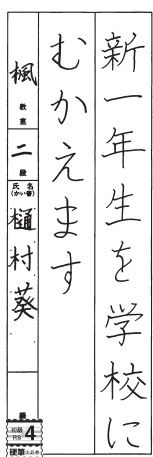 新一年生を学校に
むかえます
楓
教室
二
段
氏名
(かい号)
樋村葵
初級
R8
4
硬筆出品券